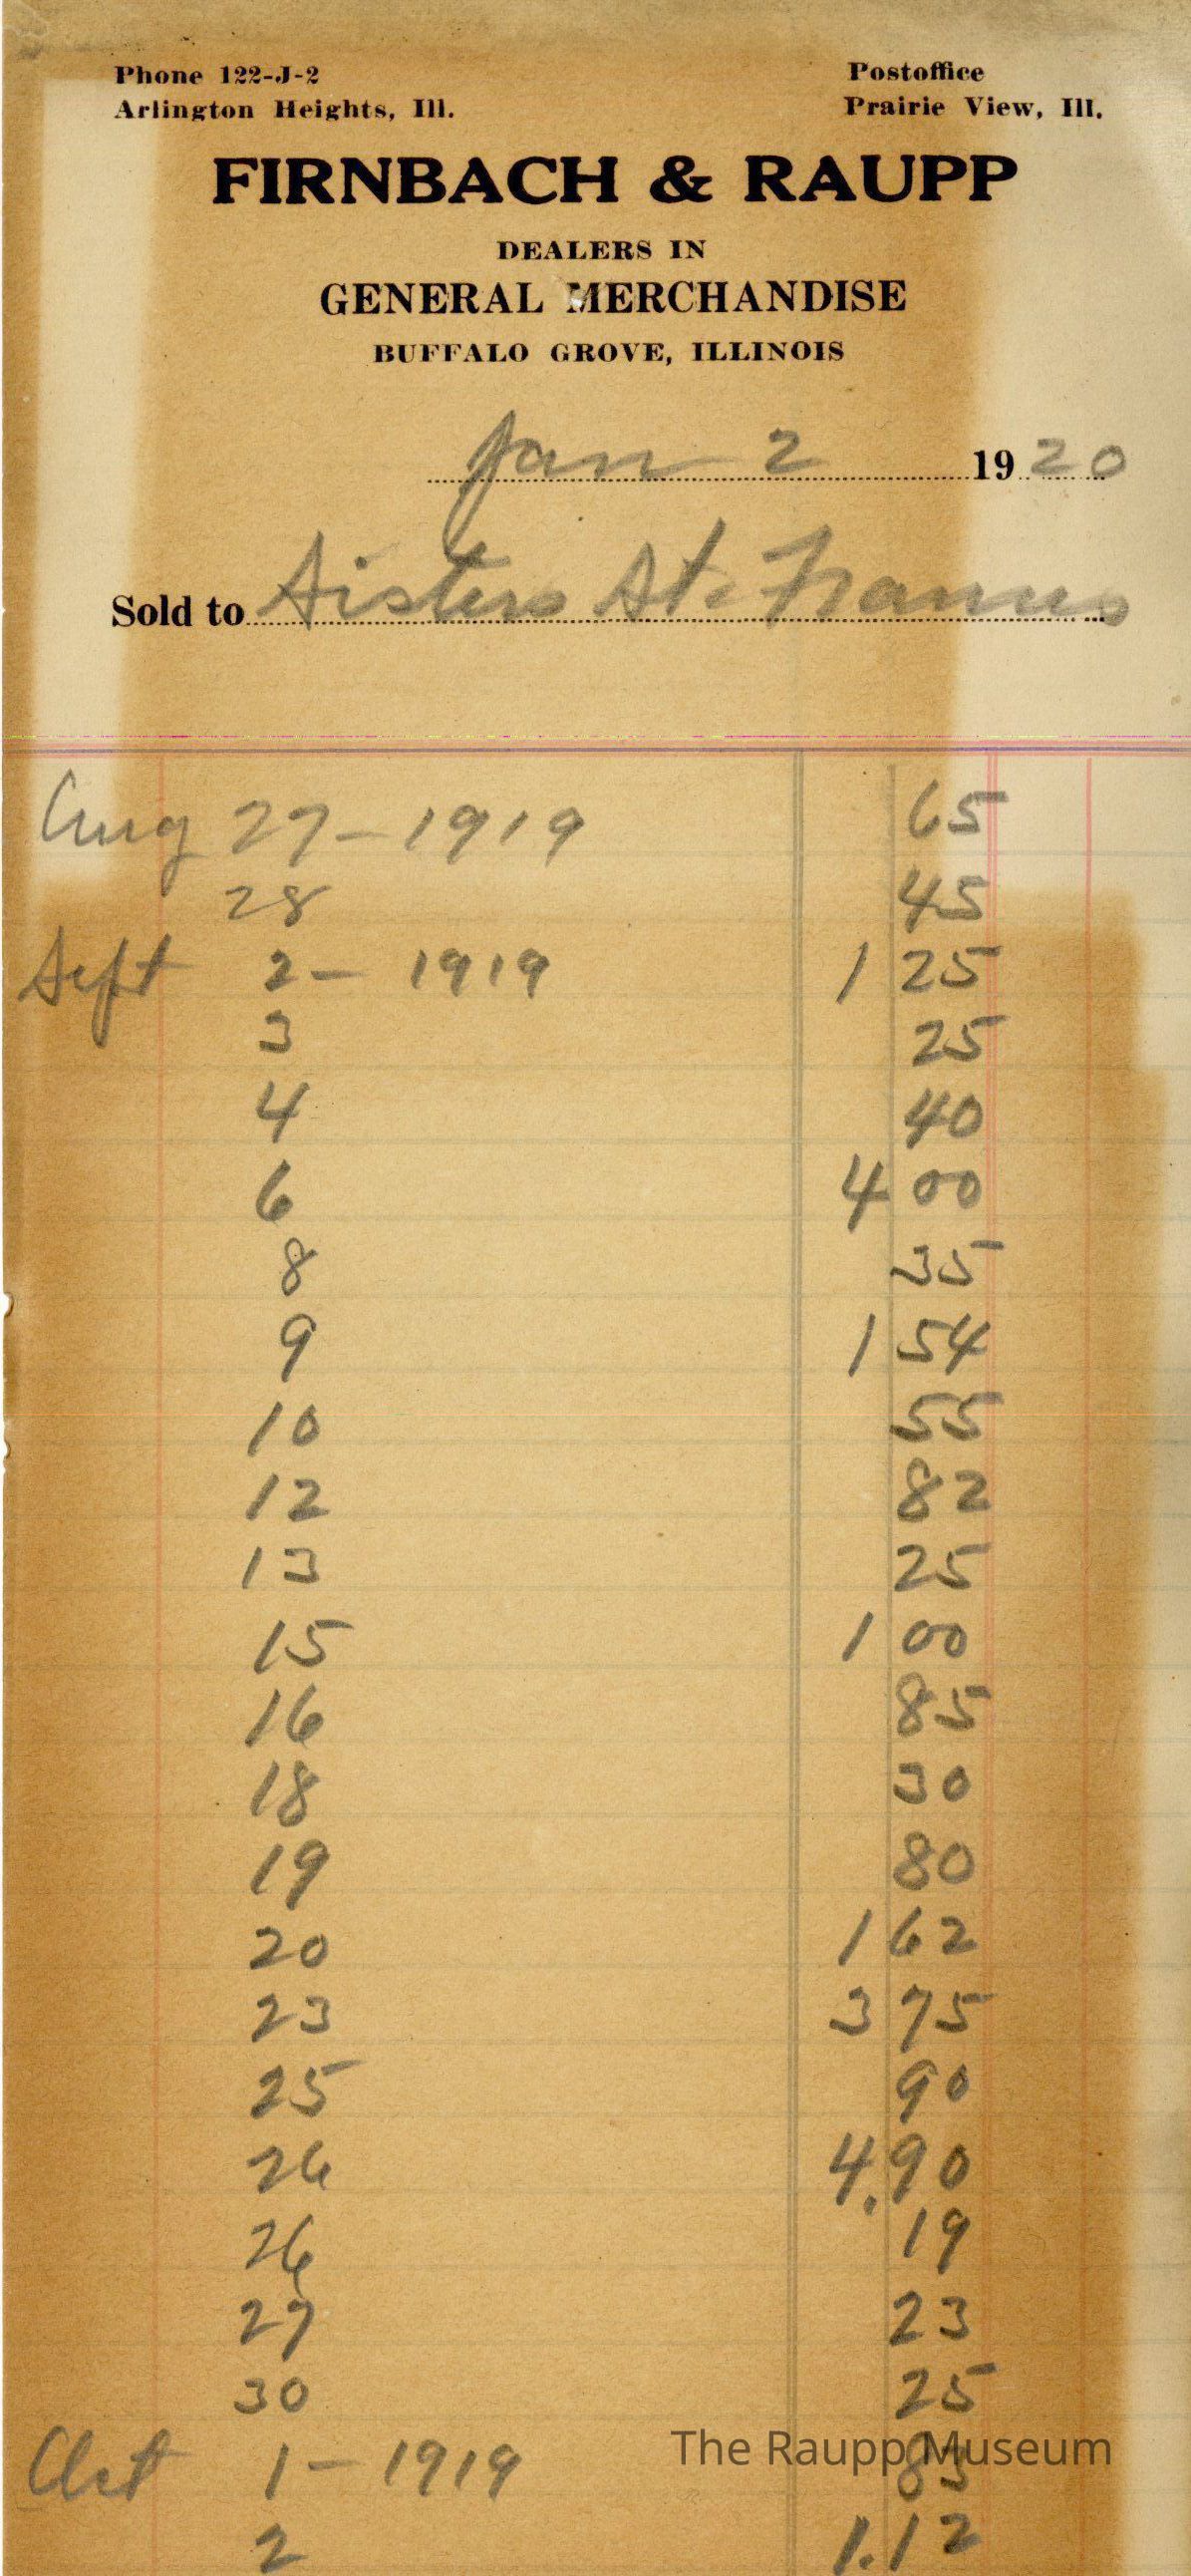 Phone 122-J-2 Postoffice
Arlington Heights, Ill. Prairie View, Ill.
FIRNBACH & RAUPP
DEALERS IN
GENERAL MERCHANDISE
BUFFALO GROVE, ILLINOIS
Jan 2 1920
Sold to Sisters St. Francis
Aug 27-1919 65
28 45
Sept 2- 1919 1 25
3 25
4 40
6 4 00
8 35
9 1 54
10 55
12 82
13 25
15 1 00
16 85
18 30
19 80
20 1 62
23 3 75
25 90
26 4.90
26 19
27 23
30 25
The Raupp Museum
Oct 1-1919
2 1.12